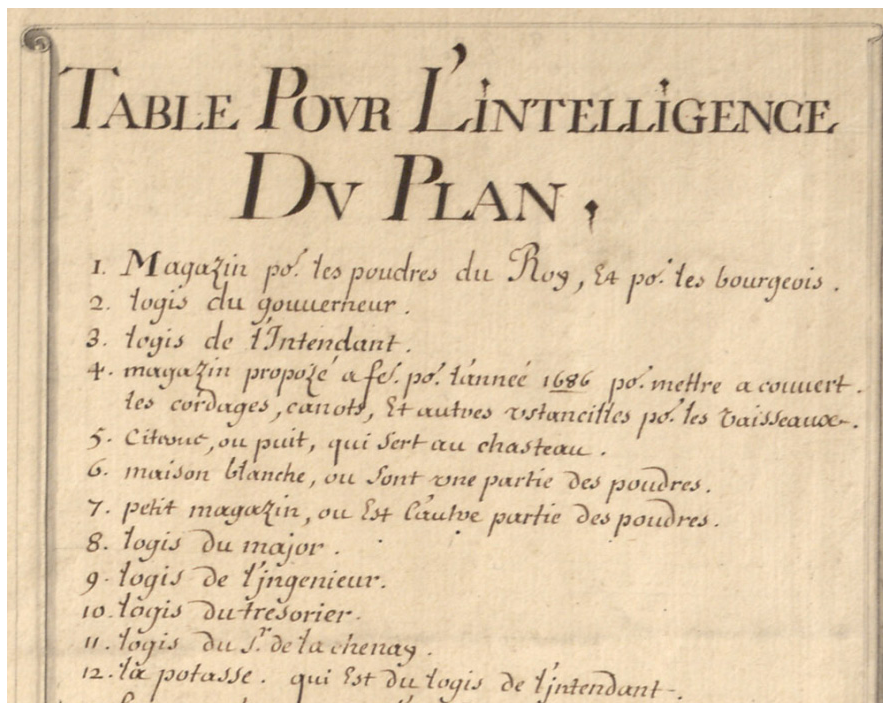 TABLE POVR L'INTELLIGENCE
DV PLAN,
1. Magazin po.r les poudres du Roy, Et po.r les bourgeois.
2. logis du gouuerneur.
3. logis de l'Intendant.
4. magazin propozé a fe.r po.r l'anneé 1686 po.r mettre a couuert.
les cordages, canots, Et autres vstancilles po.r les vaisseaux.
5. Citerne, ou puit, qui sert au chasteau.
6. maison blanche, ou sont vne partie des poudres.
7. petit magazin, ou Est l'autre partie des poudres.
8. logis du major.
9. logis de l'jngenieur.
10. logis du tresorier.
11. logis du S.r de la chenay.
12. la potasse. qui Est du logis de l'jntendant.